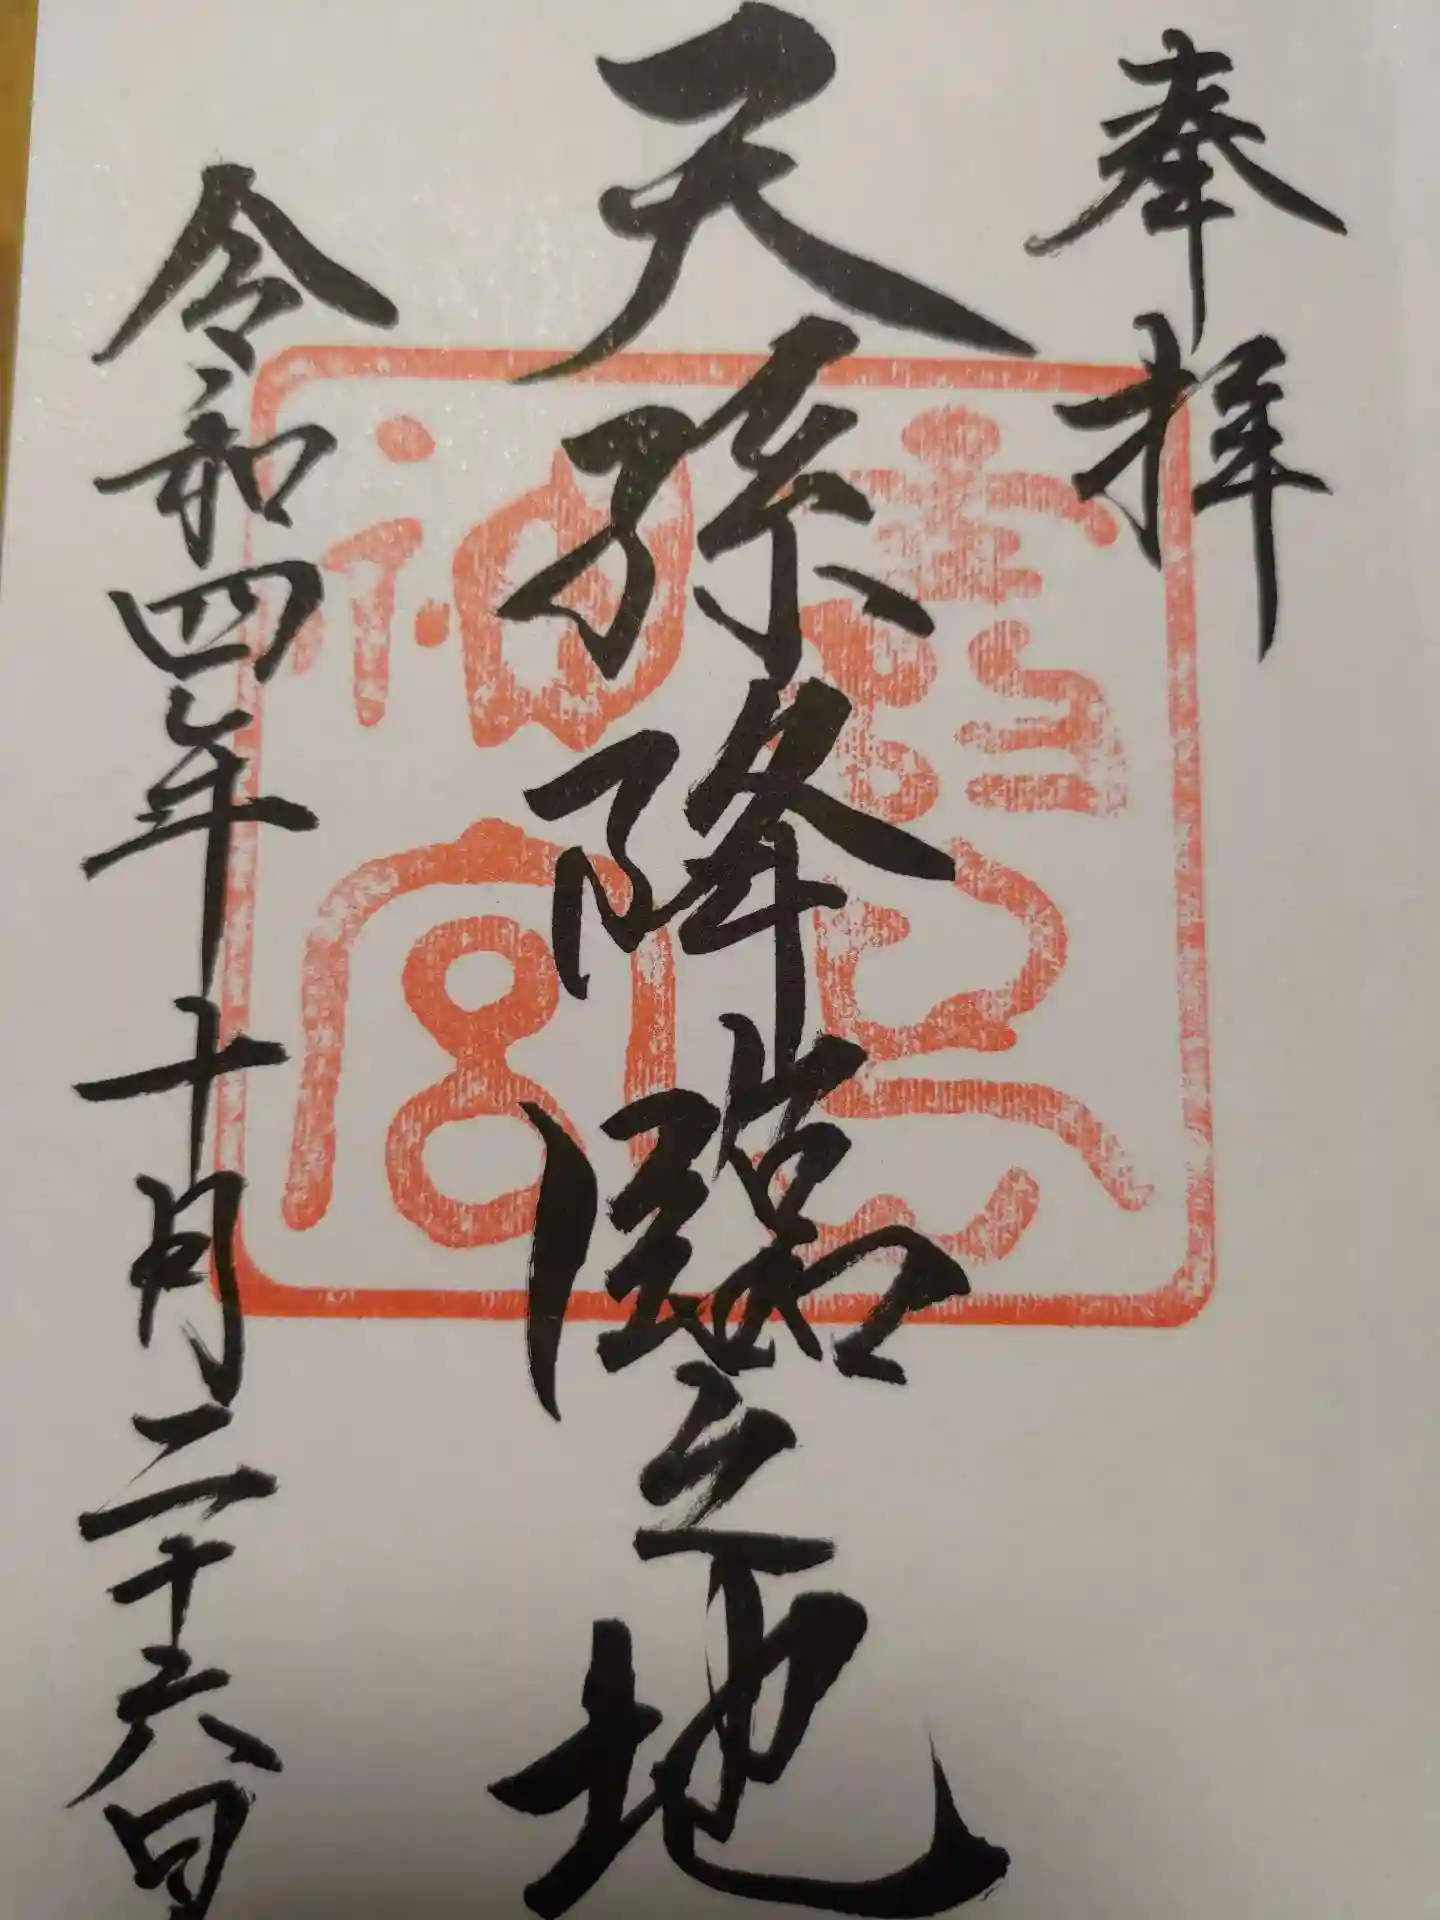 奉拝
天孫降臨之地
令和四年十月二十六日
霧島神宮